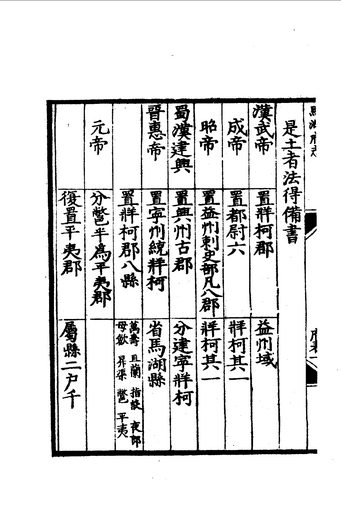 是土者法得備書
漢武帝 置牂柯郡 益州域
成帝 置都尉六 牂柯其一
昭帝 置益州刺史部凡八郡 牂柯其一
蜀漢建興 置興州古郡 分建寧牂柯
晉惠帝 置寧州統牂柯 省馬湖縣
置牂柯郡八縣 萬壽 且蘭 指談 夜郎
毋歛 昇渠 鱉 平夷
元帝 分鱉半為平夷郡
復置平夷郡 屬縣二戶千